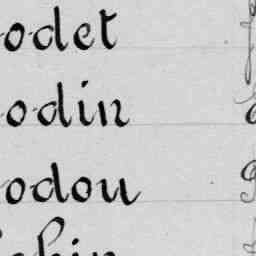 odet
odin
odou